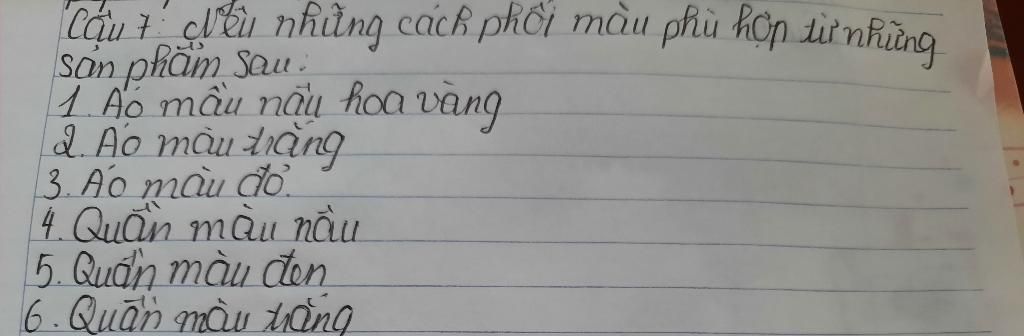 Câu 7: Nêu những cách phối màu phù hợp từ những
sản phẩm sau:
1. Áo mầu nâu hoa vàng
2. Áo màu trắng
3. Áo màu đỏ.
4. Quần màu nâu
5. Quần màu đen
6. Quần màu trắng